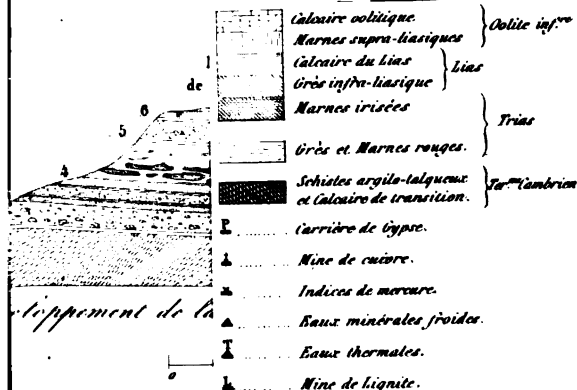 Calcaire oolitique.
Marnes supra-liasiques
Oolite inf.re
Calcaire du Lias
Grès infra-liasique
Lias
Marnes irisées
Grès et Marnes rouges.
Trias
Schistes argilo-talqueux
et Calcaire de transition.
Ter.ns Cambrien
P ........ Carrière de Gypse.
........ Mine de cuivre.
........ Indices de mercure.
........ Eaux minérales froides.
T ........ Eaux thermales.
L ........ Mine de Lignite.
1
de
6
5
4
de la
0